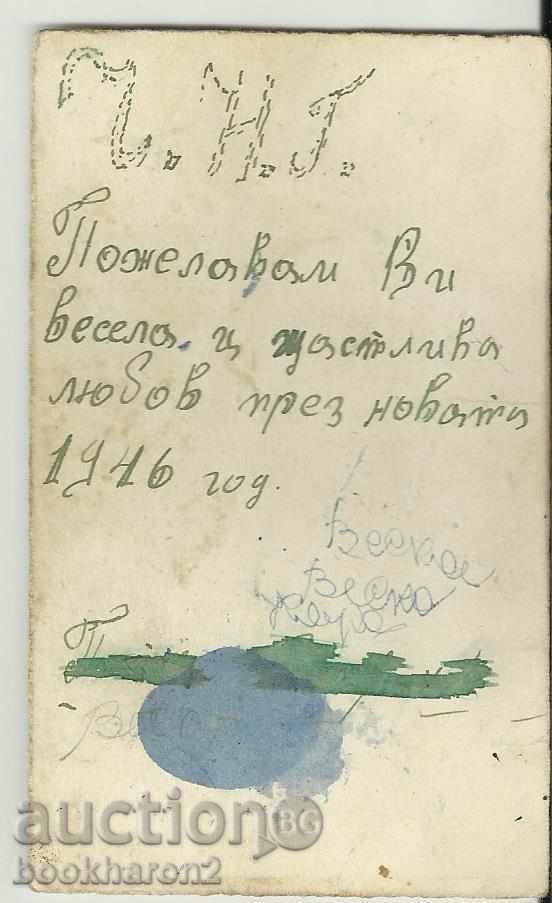 Ч.Н.Г.
Пожелавам Ви
весела и щастлива
любов през новата
1946 год.
Веска
Веска
П
auction BG
bookharon2